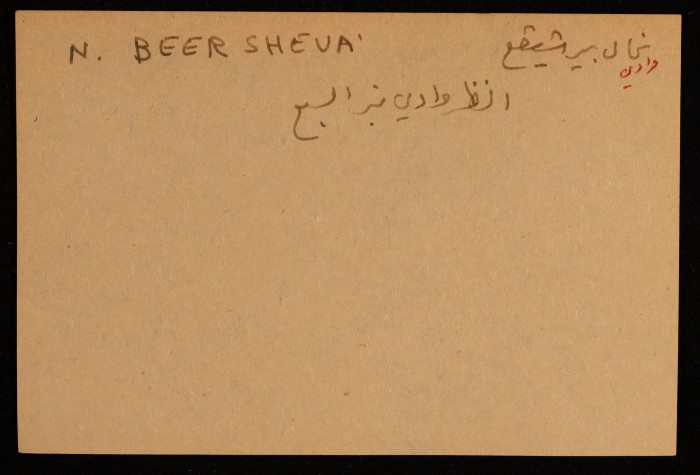 N. BEER SHEVA' نحال بير شيفع
وادي
انظر وادي بئر السبع